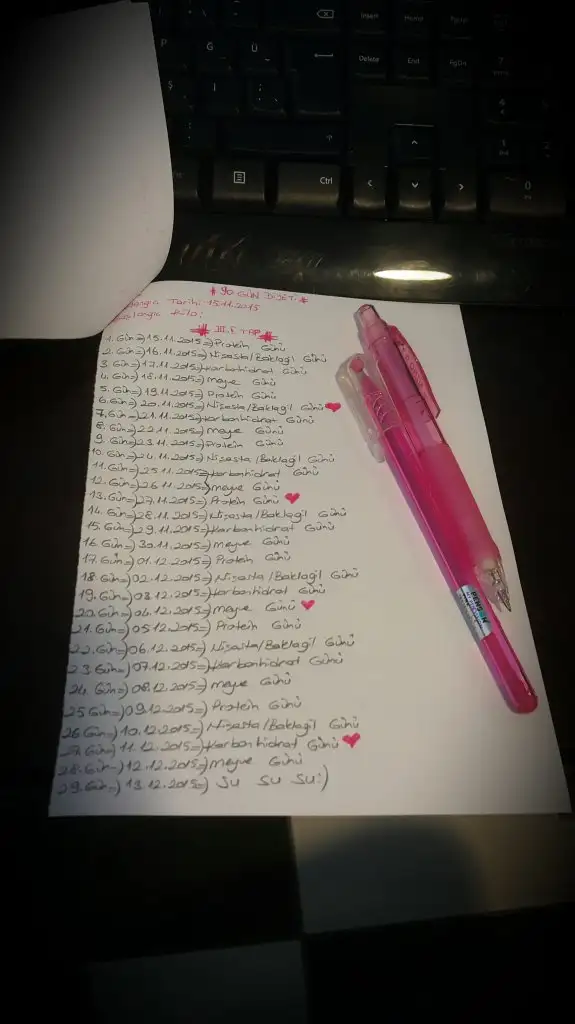 Insert
Home
PgUp
P Ğ Ü
Delete
End
PgDn
7
Ş İ ;
Ctrl
0
* 90 GÜN DİYETİ *
Tarihi 15.11.2015
Kilo:
# III. ETAP #
1. Gün=) 15.11.2015=) Protein Günü
2. Gün=) 16.11.2015=) Nişasta/Baklagil Günü
3. Gün=) 17.11.2015=) Karbonhidrat Günü
4. Gün=) 18.11.2015=) Meyve Günü
5. Gün=) 19.11.2015=) Protein Günü
6. Gün=) 20.11.2015=) Nişasta/Baklagil Günü ♥
7. Gün=) 21.11.2015=) Karbonhidrat Günü
8. Gün=) 22.11.2015=) Meyve Günü
9. Gün=) 23.11.2015=) Protein Günü
10. Gün=) 24.11.2015=) Nişasta/Baklagil Günü
11. Gün=) 25.11.2015=) Karbonhidrat Günü
12. Gün=) 26.11.2015=) Meyve Günü
13. Gün=) 27.11.2015=) Protein Günü ♥
14. Gün=) 28.11.2015=) Nişasta/Baklagil Günü
15. Gün=) 29.11.2015=) Karbonhidrat Günü
16. Gün=) 30.11.2015=) Meyve Günü
17. Gün=) 01.12.2015=) Protein Günü
18. Gün=) 02.12.2015=) Nişasta/Baklagil Günü
19. Gün=) 03.12.2015=) Karbonhidrat Günü
20. Gün=) 04.12.2015=) Meyve Günü ♥
21. Gün=) 05.12.2015=) Protein Günü
22. Gün=) 06.12.2015=) Nişasta/Baklagil Günü
23. Gün=) 07.12.2015=) Karbonhidrat Günü
24. Gün=) 08.12.2015=) Meyve Günü
25. Gün=) 09.12.2015=) Protein Günü
26. Gün=) 10.12.2015=) Nişasta/Baklagil Günü
27. Gün=) 11.12.2015=) Karbonhidrat Günü ♥
28. Gün=) 12.12.2015=) Meyve Günü
29. Gün=) 13.12.2015=) Su Su Su:)
PENSAN